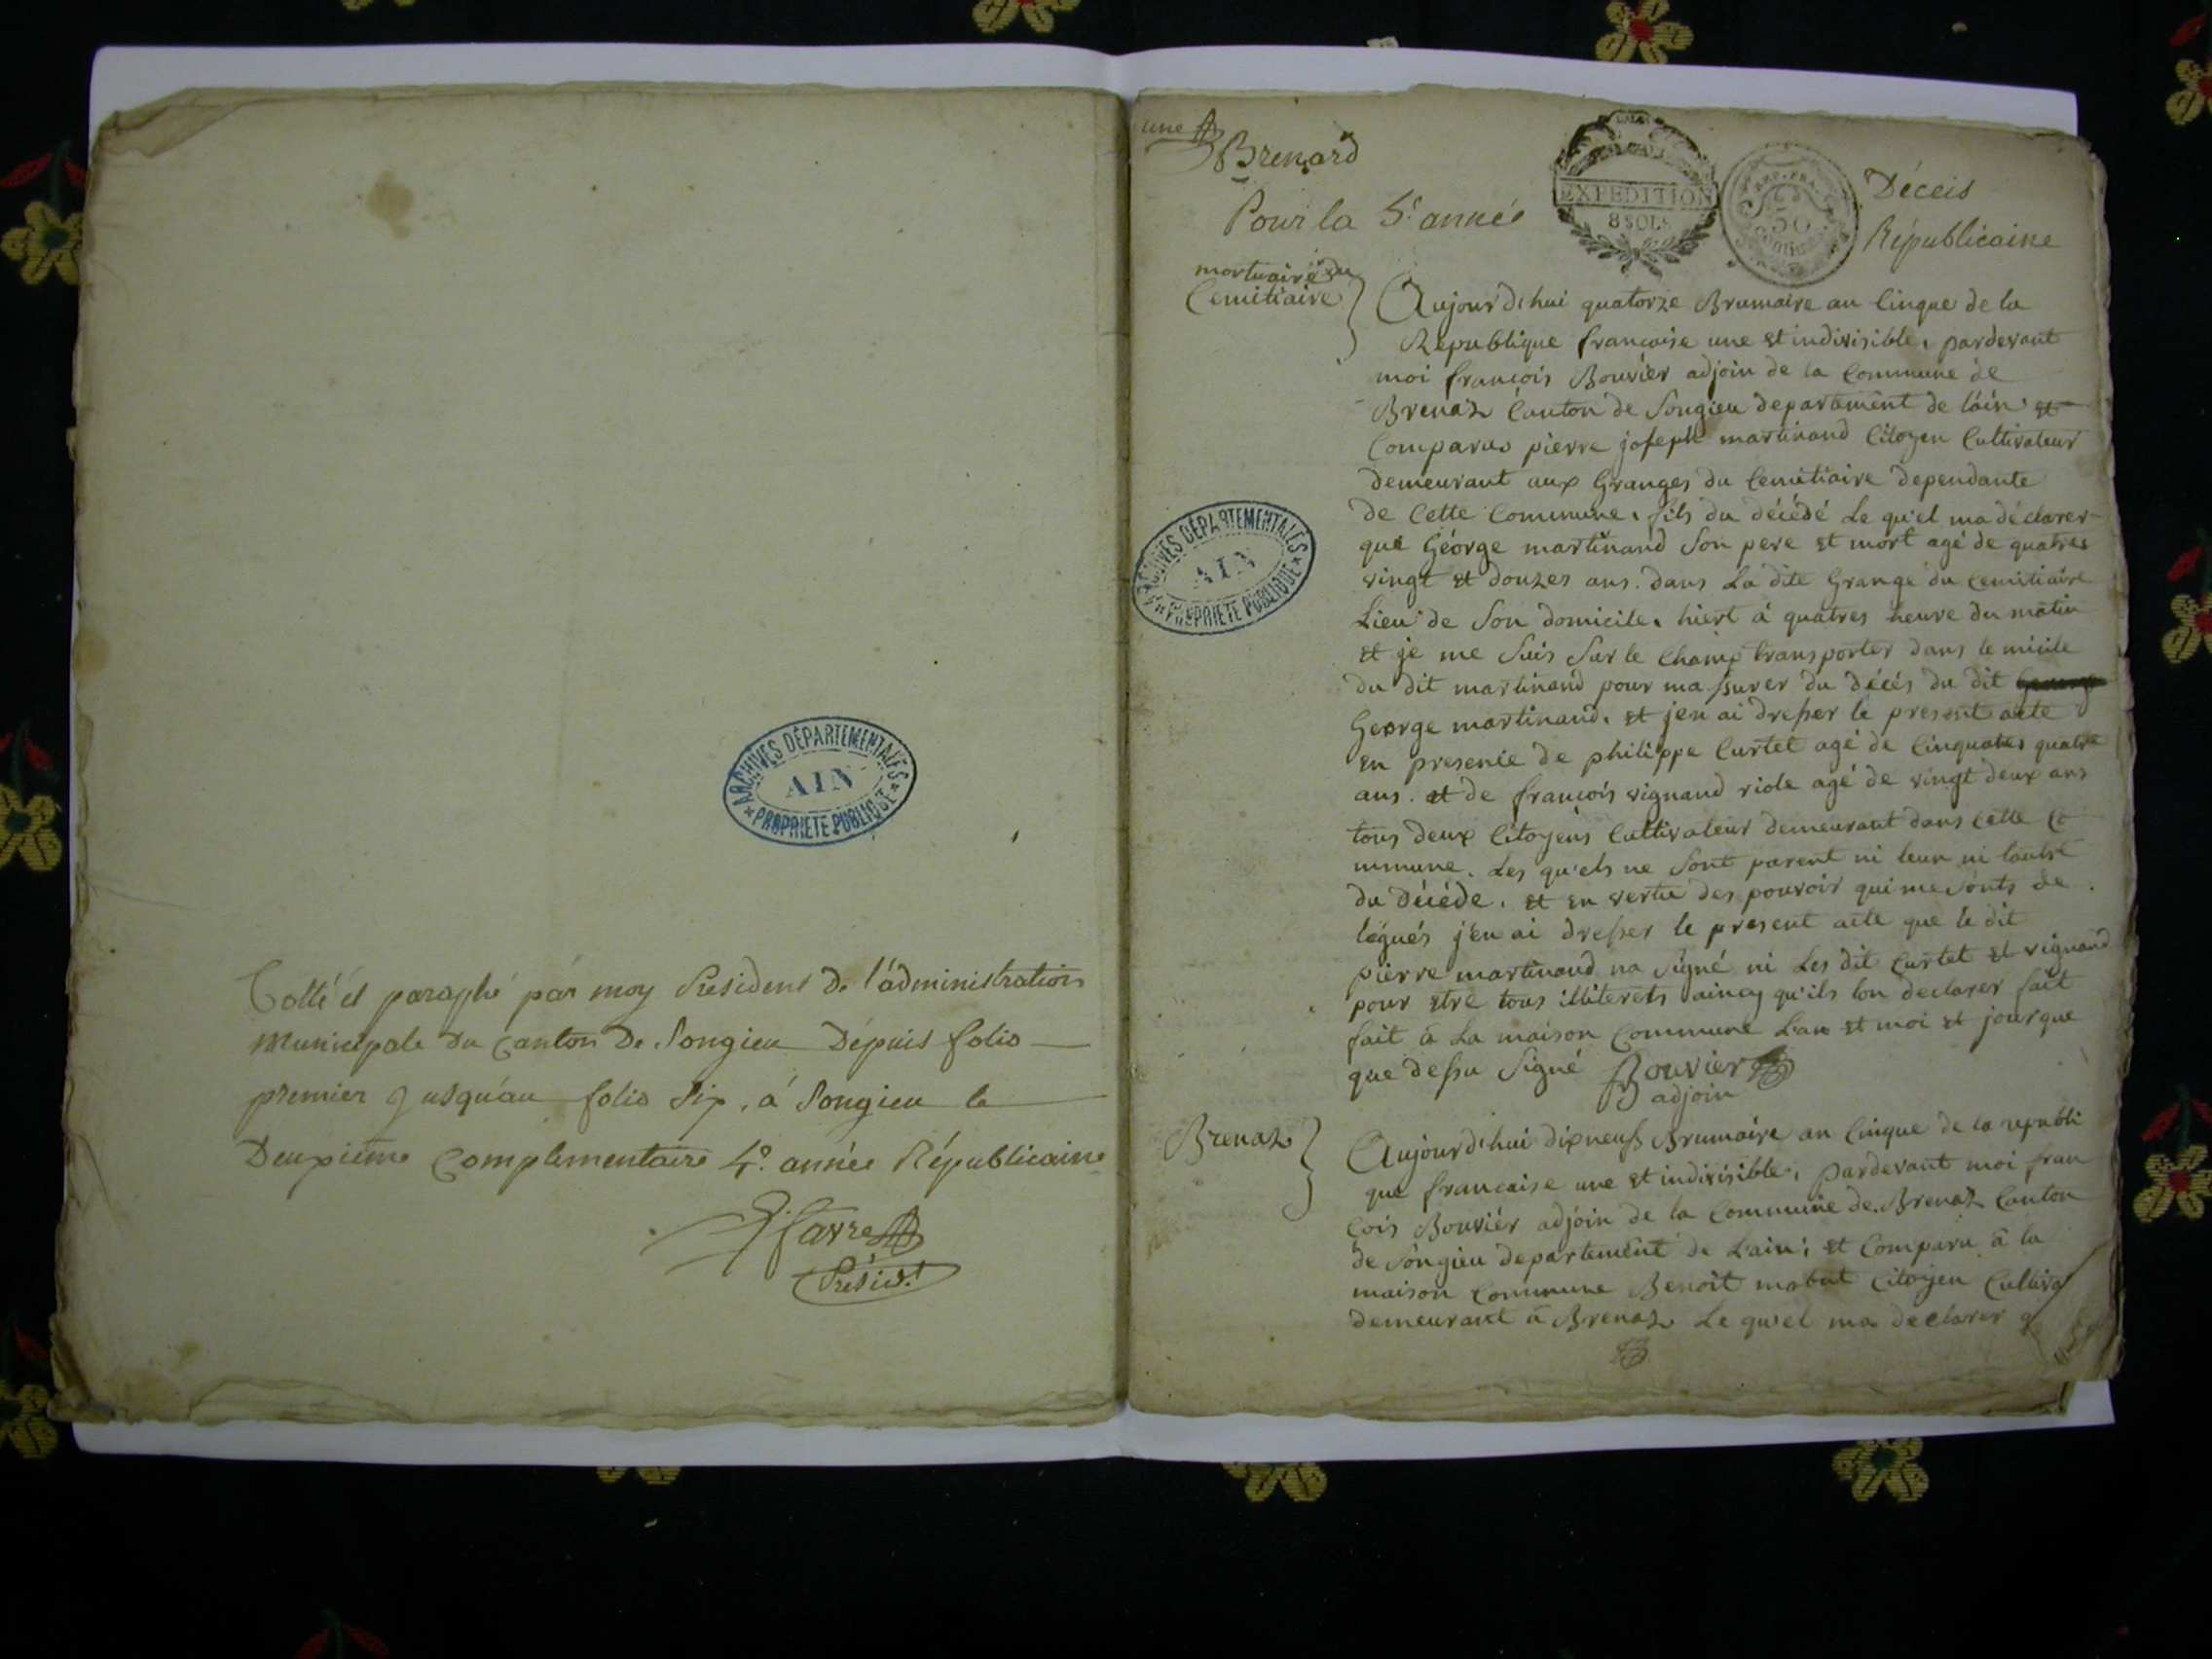 Cotté et paraphé par moy Président De l'administration
Municipale du Canton De Songieu Dépuis folio
premier jusqu'au folio six, à Songieu le
Deuxième Complementaire 4e. année Républicaine
Présidt.
ARCHIVES DÉPARTEMENTALES
AIN
PROPRIETE PUBLIQUE
une
Brenard
Déceis
Pour la 5e année
Républicaine
EXPEDITION
8 SOLS
REP. FRA.
50
mortuaire du
Cemitiaire
Aujourd'hui quatorze Brumaire an Cinque de la
Republique francoise une et indivisible, pardevant
moi francois Bouvier adjoin de la Commune de
Brenaz Canton de Songieu departament de l'ain et
Comparus pierre joseph martinand Citoyen Cultivateur
demeurant aux Granges du Cemitiaire dependante
de Cette Commune, fils du décédé Le qu'el ma déclarer
que Géorge martinand Son pere et mort agé de quatres
vingt et douzes ans. dans La dite Grange du Cemitiaire
Lieu de Son domicile, hiert à quatres heure du matin
et je me Suis Sur le Champ transporter dans le micile
du dit martinand pour massurer du décés du dit
George martinand, et jen ai dresser le present acte
en presence de philippe Curtet agé de Cinquates quatre
ans. et de francois vignand riole agé de vingt deux ans
tous deux Citoyens Cultivateur demeurant dans Cette Co
mmune. Les qu'els ne Sont parent ni leun ni lautre
du décéde. et en vertu des pouvoir qui me Sonts de
légués j'en ai dresser le present acte que le dit
pierre martinand na Signé ni Les dit Curtet et vignand
pour etre tous illiterets aincy qu'ils lon declarer fait
fait à La maison Commune L'an et moi et jour que
que dessu Signé Bouvier
adjoin
ARCHIVES DÉPARTEMENTALES
AIN
PROPRIETE PUBLIQUE
Brenaz
Aujourd'hui dixneuf Brumaire an Cinque de la republi
que francaise une et indivisible, pardevant moi fran
cois Bouvier adjoin de la Commune de Brenaz Canton
de Songieu departement de L'ain; et Comparu à la
maison Commune Benoit mabut Citoyen Cultiva
demeurant à Brenaz Le qu'el ma declarer